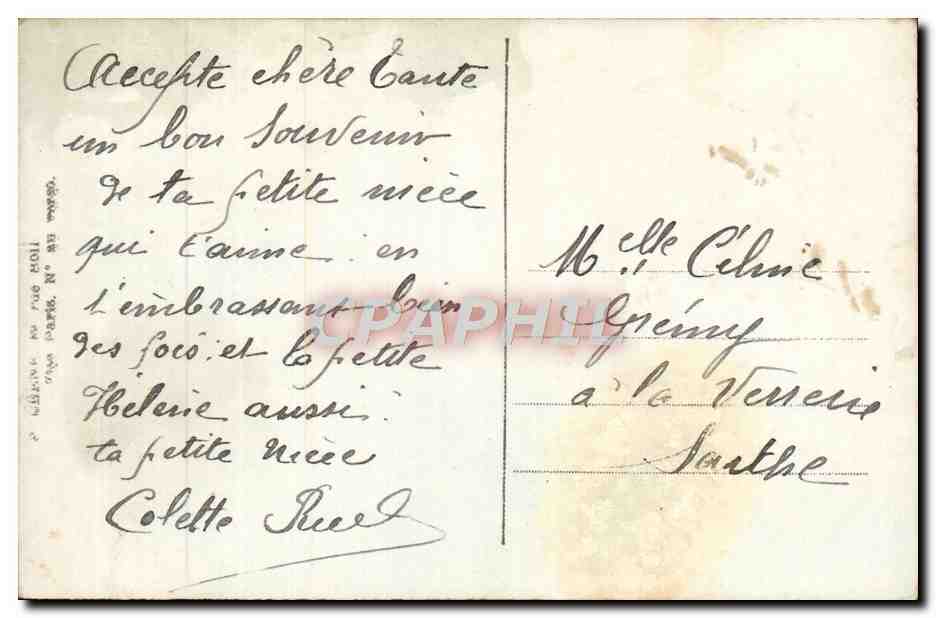 Accepte chère Tante
un bon souvenir
de ta petite nièce
qui t'aime en
t'embrassant bien
des fois et la petite
Hélène aussi
ta petite nièce
Colette
Melle Céline
à la Verrerie
Sarthe
CPAPHIL